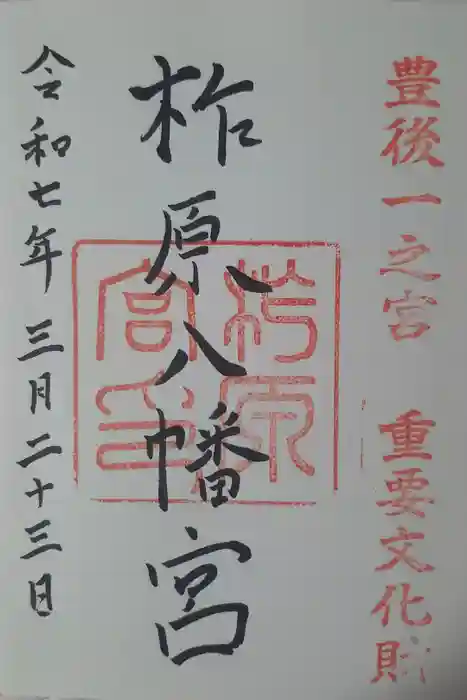 豊後一之宮 重要文化財
柞原八幡宮
令和七年 三月二十三日